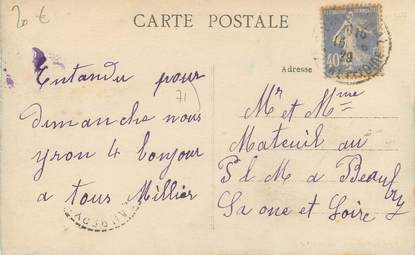 20 €
CARTE POSTALE
Adresse
40
29
Entandu pour
71
dimanche nous
yron 4 bonjour
a tous Millier
Mr et Mme
Mateuil au
P l M a Beaubry
Saone et Loire